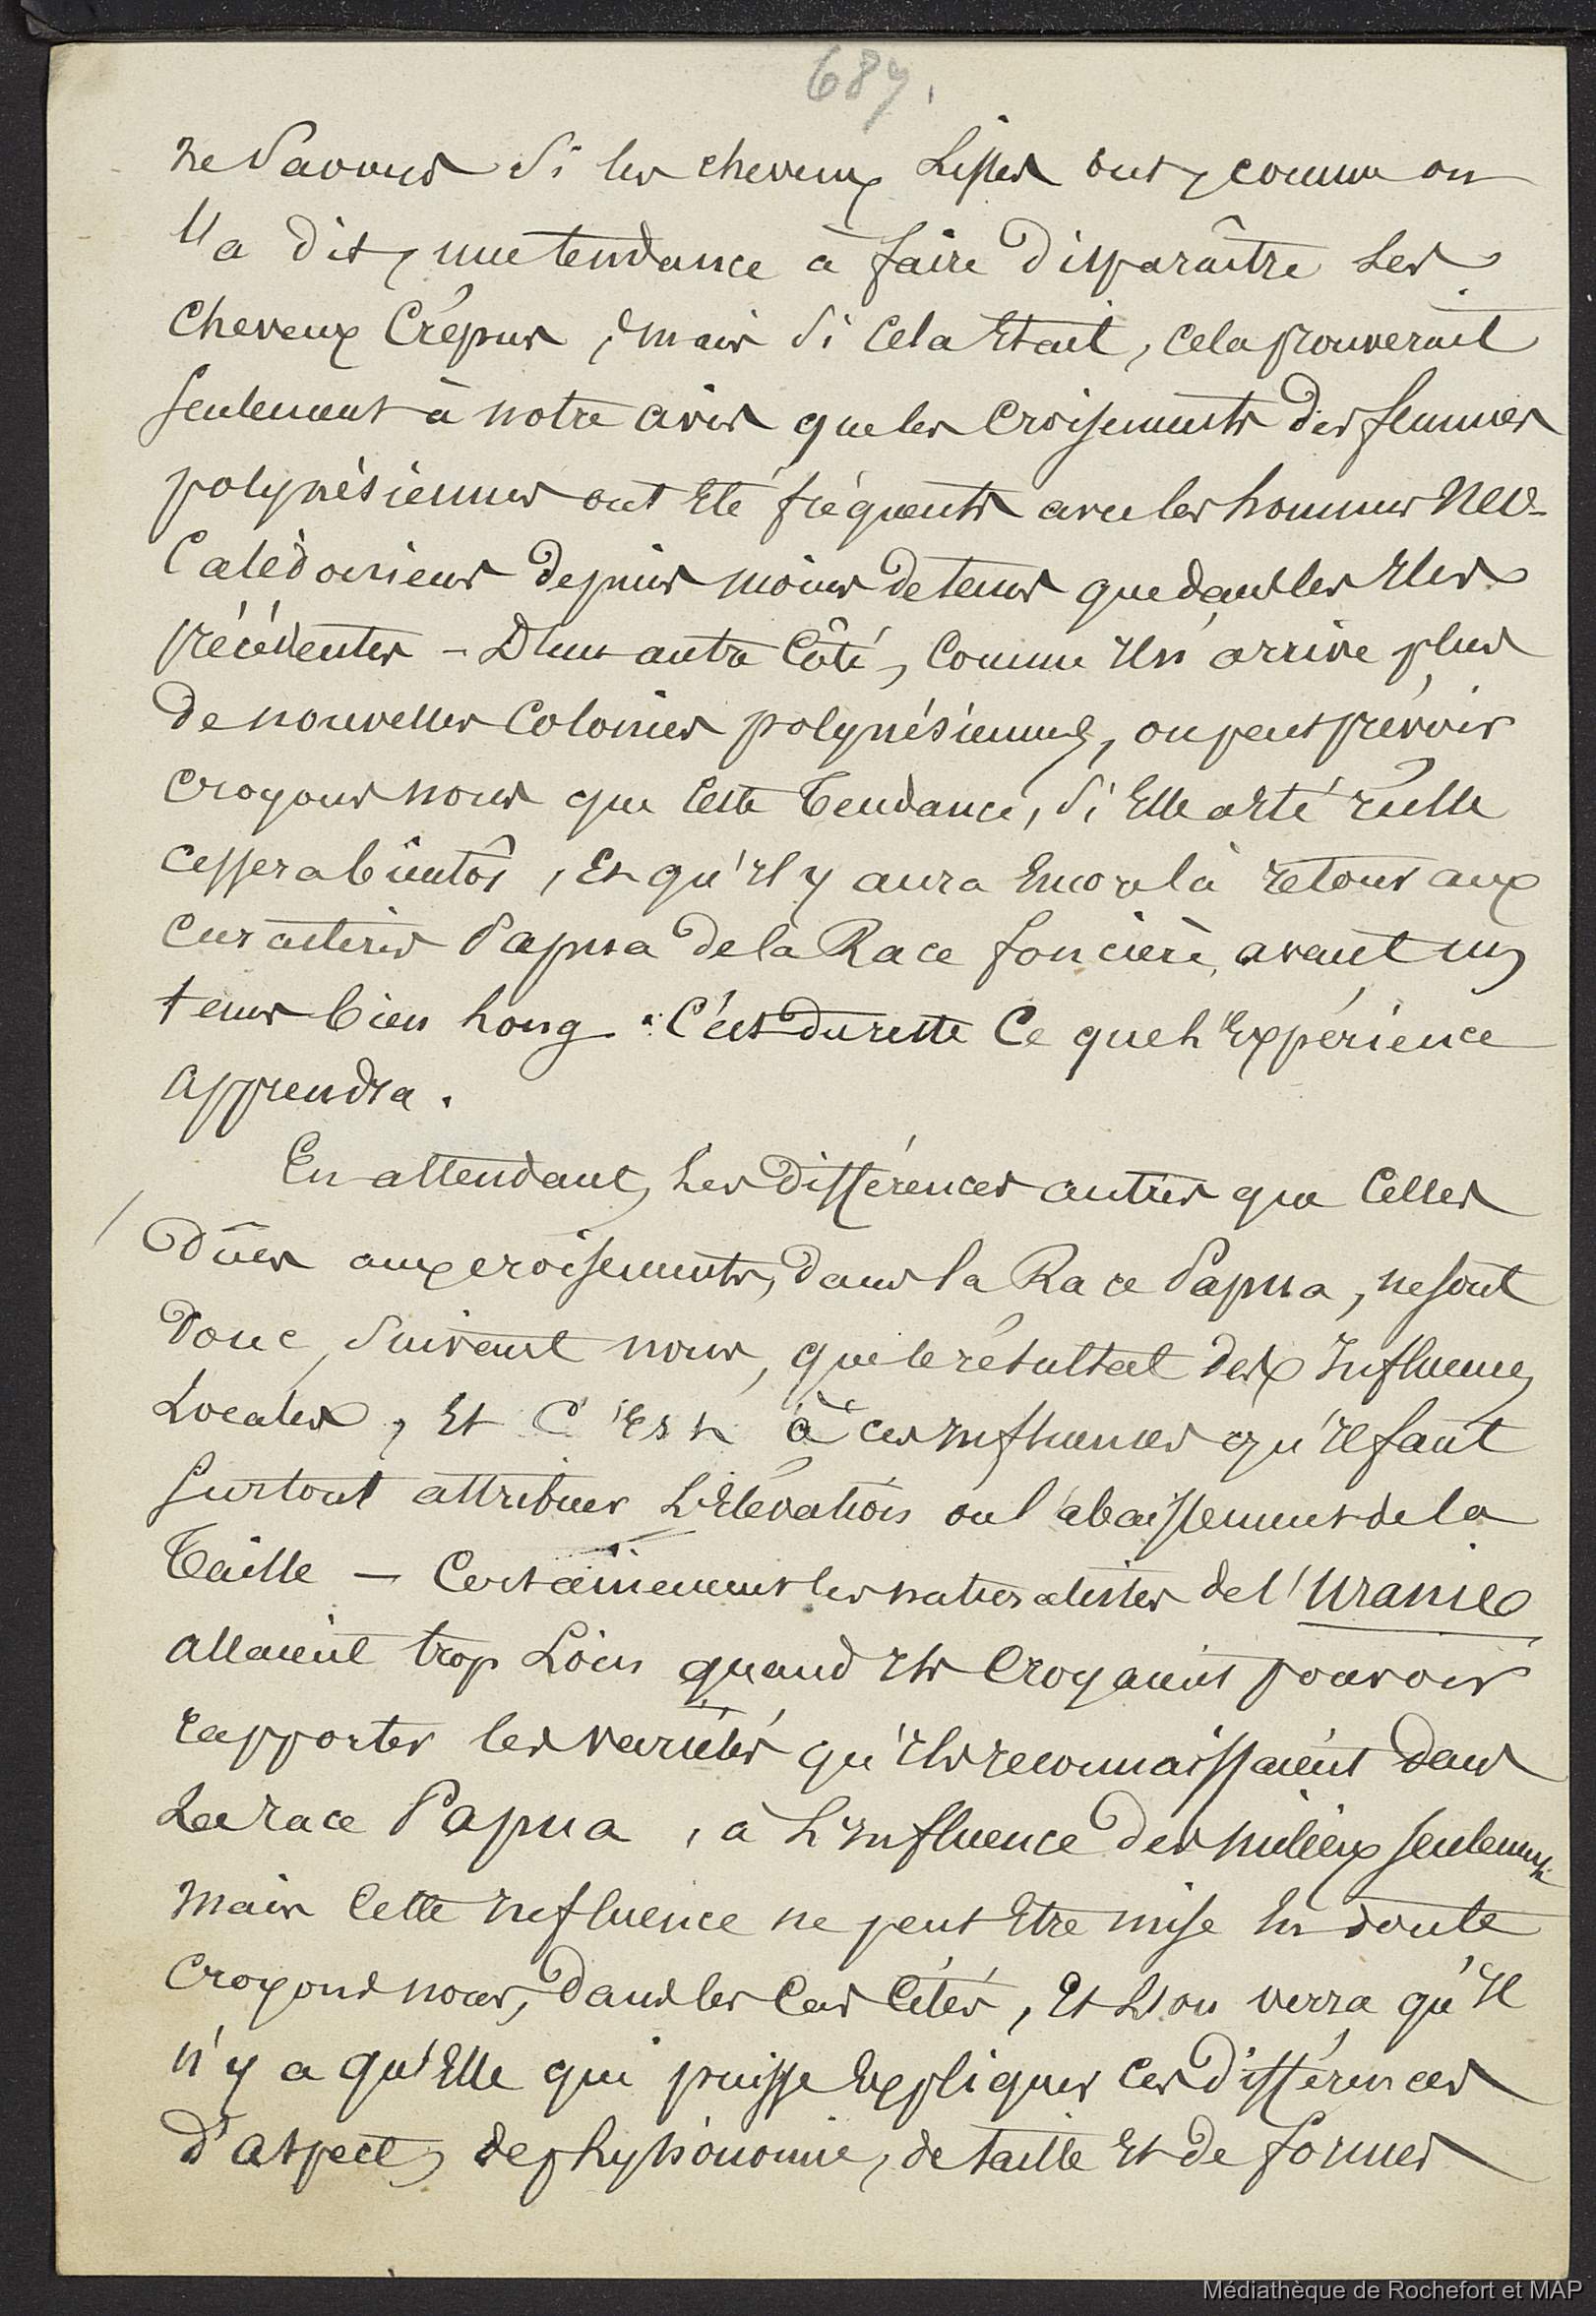 687.
ne savons si les cheveux lisses ont, comme on
l'a dit, une tendance à faire disparaître les
cheveux crépus, mais si cela était, cela prouverait
seulement à notre avis que les croisements des femmes
polynésiennes ont été fréquents avec les hommes Néo-
Calédoniens depuis moins de tems que dans les Iles
précédentes - D'un autre côté, comme il n'arrive plus
de nouvelles colonies polynésiennes, on peut prévoir
croyons nous que cette tendance, si elle a été réelle
cessera bientôt, et qu'il y aura encore là retour aux
caractères Papua de la Race foncière, avant un
tems bien long. C'est du reste ce que l'expérience
apprendra.
En attendant, les différences autres que celles
dûes aux croisements, dans la Race Papua, ne sont
donc, suivant nous, que le résultat des Influences
locales, et c'est à ces influences qu'il faut
surtout attribuer l'élévation ou l'abaissement de la
taille - Certainement les naturalistes de l'Uranie
allaient trop loin quand ils croyaient pouvoir
rapporter les variétés qu'ils reconnaissaient dans
la race Papua, à l'influence des milieux seulement.
mais cette influence ne peut être mise en doute
croyons nous, dans les cas cités, et l'on verra qu'il
n'y a qu'elle qui puisse expliquer ces différences
d'aspect, de physionomie, de taille et de formes
Médiathèque de Rochefort et MAP